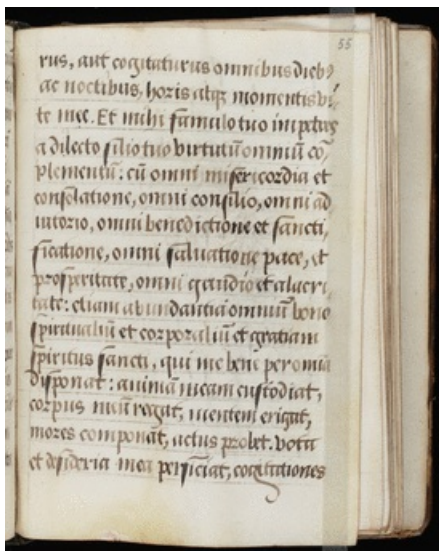 55
rus, aut cogitaturus omnibus dieb9
ac noctibus, horis atqȝ momentis vi,
te meę. Et mihi famulo tuo impetres
a dilecto filio tuo virtutū omniū cō,
plementū: cū omni misericordia et
consolatione, omni consilio, omni ad
iutorio, omni benedictione et sancti,
ficatione, omni salvatione pace, et
prosperitate, omni gaudio et alacri
tate: etiam abundantiā omniū bono
spiritualiū et corporaliū et gratiam
spiritus sancti, qui me bene per omīa
disponat: animā meam custodiat,
corpus meū regat, mentem erigat,
mores componāt, actus probet. vota
et desideria mea perficiat, cogitationes